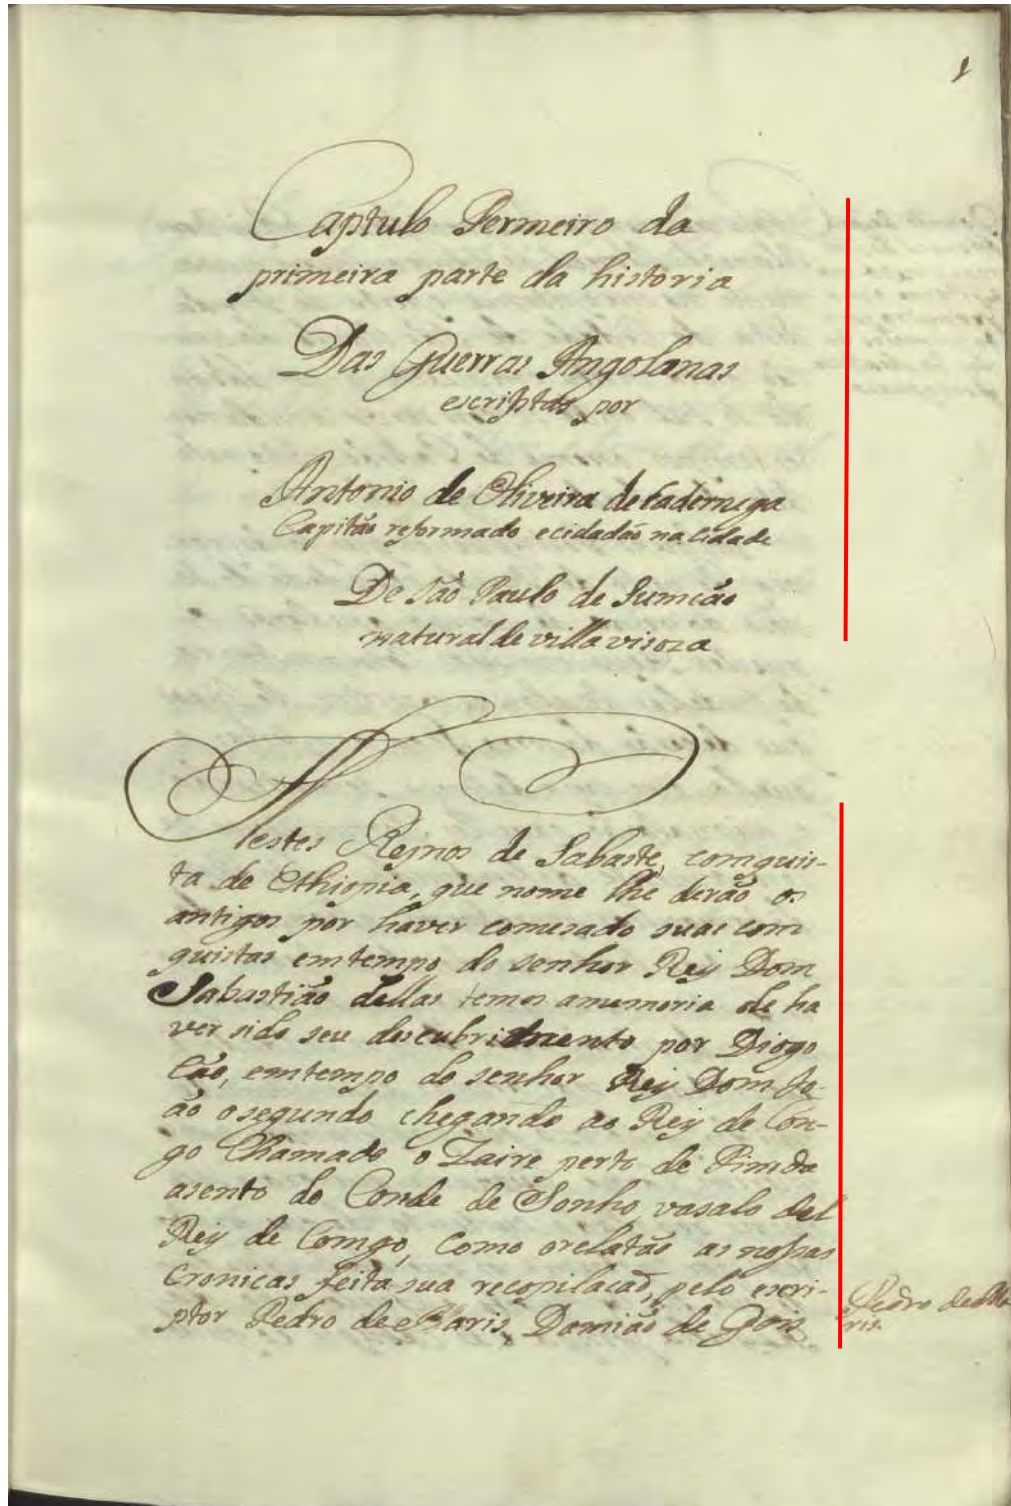 1
Captulo Permeiro da
primeira parte da historia
Das Guerras Angolanas
escriptas por
Antonio de Oliveira de Cadernega
Capitão reformado e cidadão na cidade
De São Paulo de Sumcão
natural de villa visoza
Nestes Reinos de Sabaste, comquis-
ta de Ethiopia, que nome lhe derão os
antigos por haver comesado suas com
quistas em tempo do senhor Rey Dom
Sabastião dellas temos amemoria de ha
ver sido seu descubrimento por Diogo
Cão, em tempo do senhor Rey Dom Jo-
ão osegundo chegando ao Rey de Con-
go Chamado o Zaire perto de Pinda
asento do Conde de Sonho, vasalo del
Rey de Comgo, como orelatão as nossas
Cronicas feita sua recopilacaõ, pelo escri-
ptor Pedro de Maris, Domião de Gois
Pedro de Ma-
ris.